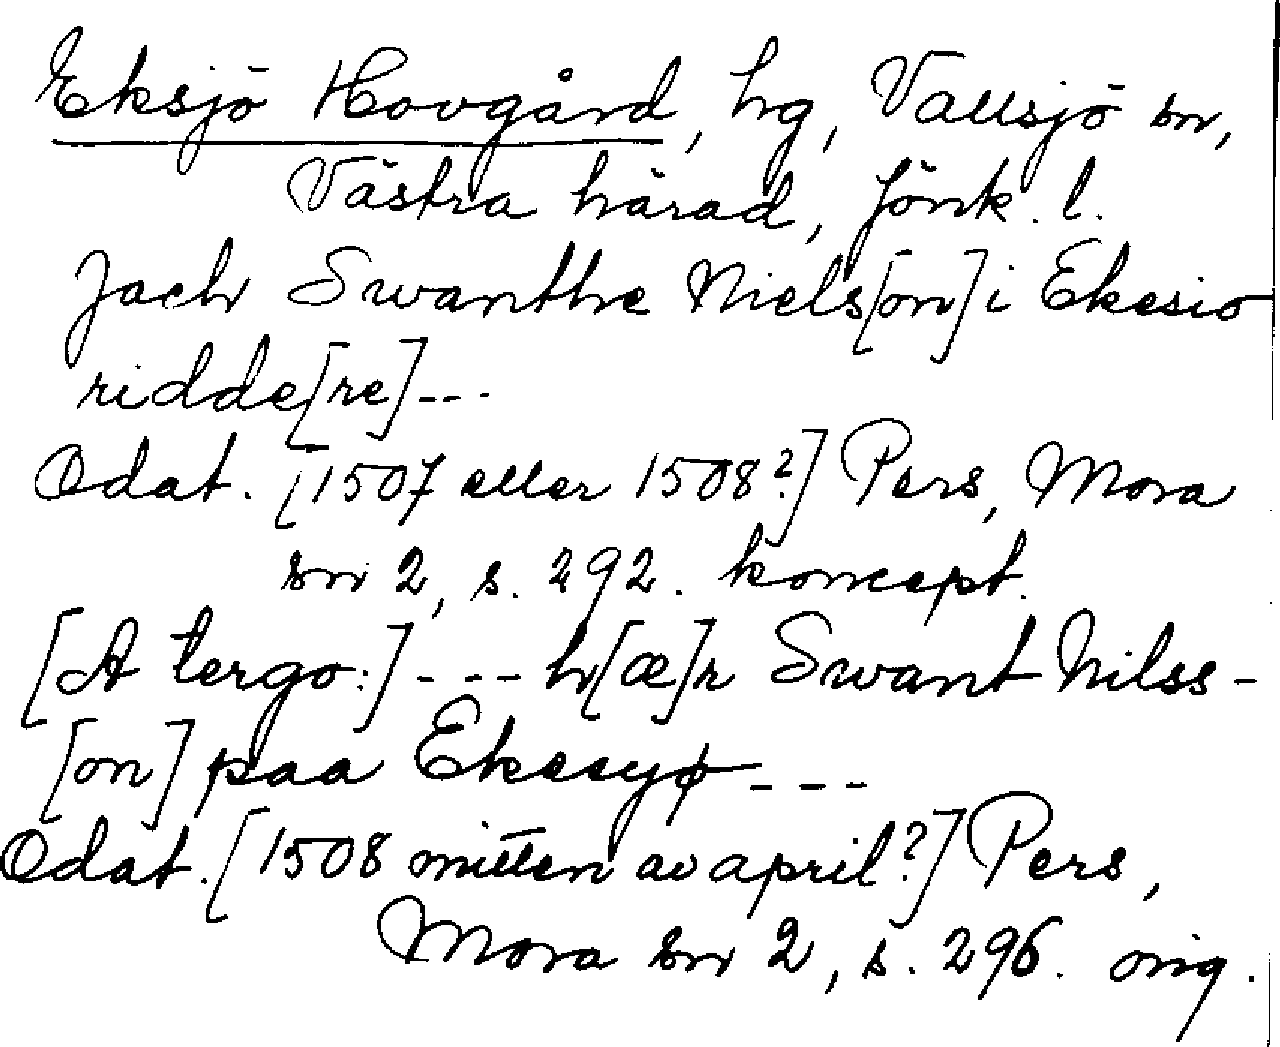 Eksjö Hovgård, hg, Vallsjö sn,
Västra härad, Jönk. l.
Jach Swanthe Niels[on] i Ekesio
ridde[re]---
Odat. [1507 eller 1508?] Pers, Mora
sn 2, s. 292. koncept.
[A tergo:]---h[æ]r Swant Nilss-
[on] paa Ekesyø---
Odat. [1508 mitten av april?] Pers,
Mora sn 2, s. 296. orig.